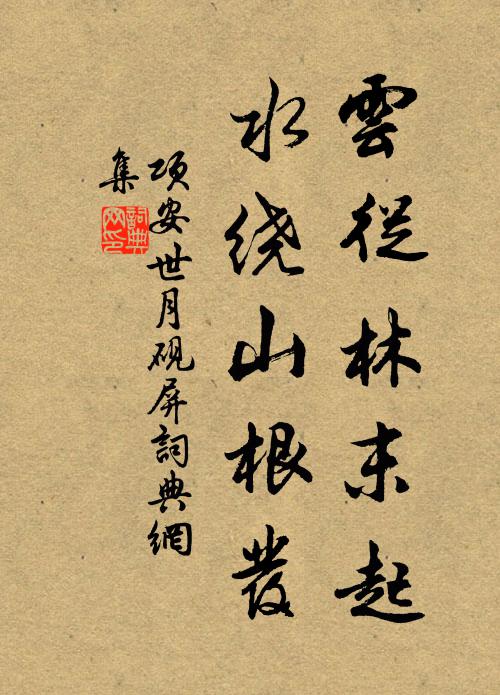 雲從林末起
水绕山根發
項安世月硯屏詞典網
集
詞典
网印